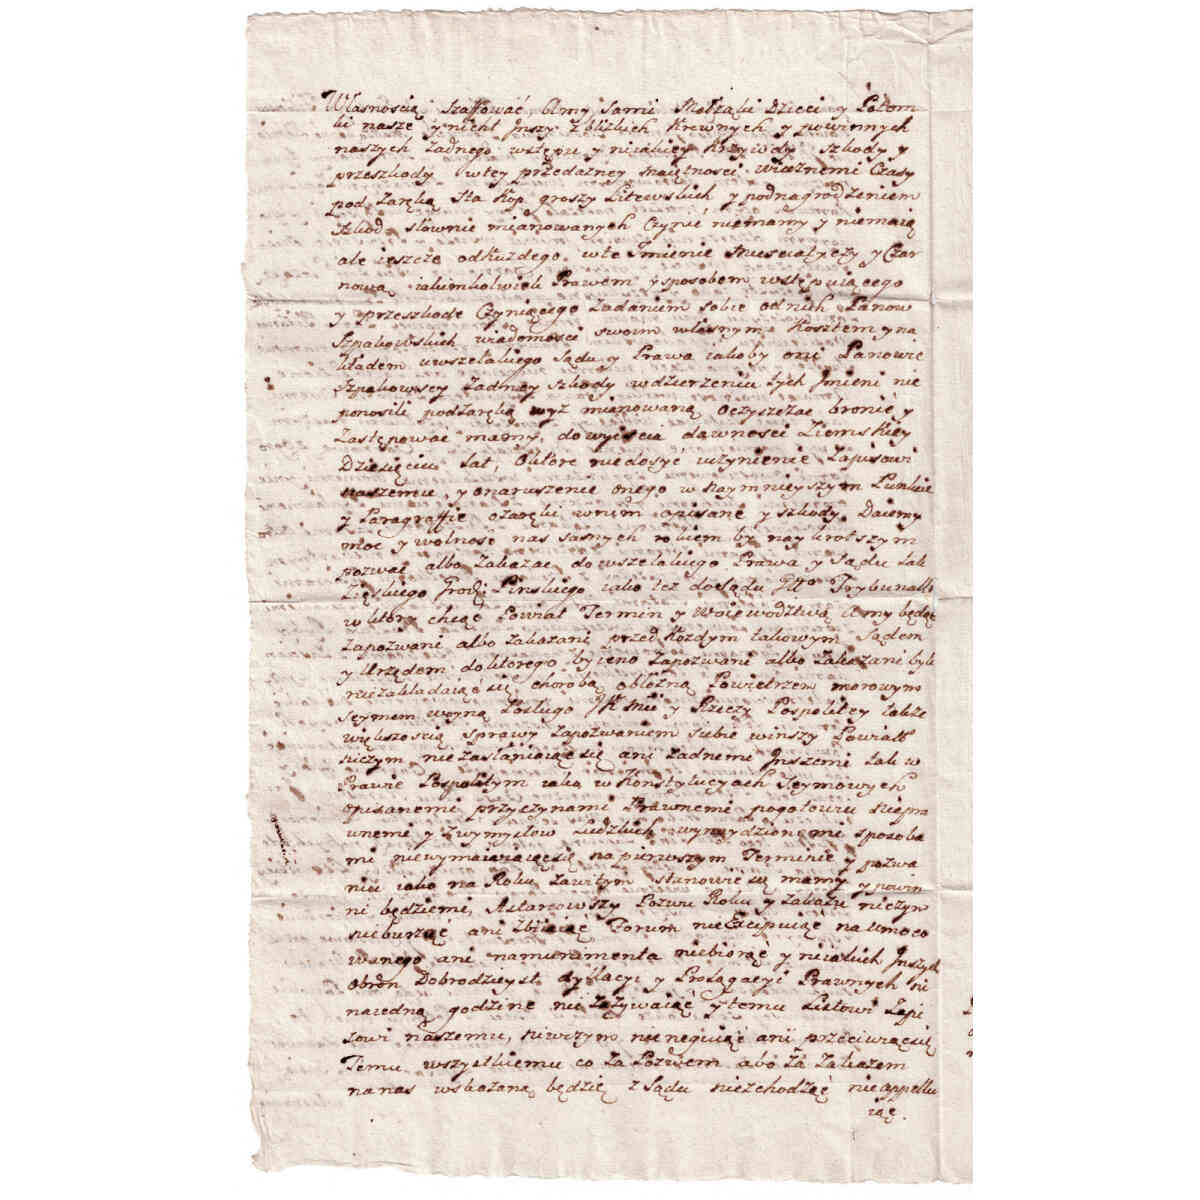 Własnoscią szaffować, Amy sami Małżąki Dzieci y Potom
ki nasze y nicht Inszy z bliskich Krewnych y powinnych
naszych żadnego wstępu y niiakiey Krzywdy szkody y
przeszkody wtey przedażney maiętnosci wiecznemi Czasy
pod zaręką sta kop groszy Litewskich y podnagrodzeniem
szkod słownie mianowanych Czynić niemamy y niemaią
ale ieszcze odkużdego wte Imienie y Czar
nową iakimkolwiek Prawem y sposobem wstępuiącego
y przeszkodę Czyniącego zadaniem sobie odnich Panow
Szpakowskich wiadomosci swoim własnym Kosztem y na
kładem uwszelakiego Sądu y Prawa iakoby oni Panowie
Szpakowscy żadney szkody wdzierżeniu tych Imieni nie
ponosili podzaręką wyż mianowaną Oczyszczac bronić y
Zastępować mamy, do wyiscia dawnosci Ziemskiey
Dziesięciu Lat, Oktore niedosyć uczynienie Zapisowi
naszemu, y onaruszenie onego w naymnieyszym Punkcie
y Paragraffie ozaręki wnim opisane y szkody Daiemy
moc y wolnosc nas samych rokiem by nay krotszym
pozwać albo Zakazac do wszelakiego Prawa y Sądu tak
Grodz: Pinskiego iako też dosądu Gło Trybunalł
w ktory chcąc Powiat Termin y Woiewodztwa Amy będąc
Zapozwani albo zakazani przed Kożdym takowym Sądem
y Urzędem doktorego byieno Zapozwani albo Zakazani byli
niezakładaiąc się chorobą obłożną Powietrzem morowym
seymem woyną Posługą JK Mci y Rzeczy Pospolitey także
większoscią sprawy Zapozwaniem siebie winszy Powiatł
niczym niezasłaniaiąc się ani żadnemi Inszemi tak w
Prawie Pospolitym iako w Konstytucyach Seymowych
Opisanemi przyczynami Prawnemi pogotowiu niepra
wnemi y Zwymysłow Ludzkich wynaydzionemi sposoba
mi niewymawiaiącsię, na pierwszym Terminie y pozwa
niu iako na Roku Zawitym stanowic się mamy y powin
ni będziemi, Astanowszy Pozwu Roku y Zakazu niczym
nieburząc ani Zbiiaiąc Forum nieExcypuiąc na umoco
wanego ani namunimenta niebiorąc y niiakich Inszych
obron Dobrodzieyst dyllacyi y Prołągacyi Prawnych ni
naiedną godzinę nie Zażywaiąc y temu Listowi Zapi
sowi naszemu, niwczym nieneguiąc ani przeciwiącsię
Temu wszystkiemu co Za Pozwem abo Za Zakazem
na nas wskazaną będzie z Sądu niezchodząc nieappellu
iąc.